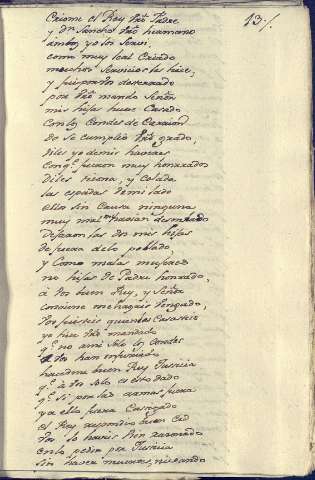 13./.
Criome el Rey vro Padre
y Dn Sancho vro hermano
ambos yo los serui,
como muy leal Criado
muchos seruicios les hice,
y fui por vos desterrado
por vro mando Señor
mis hijas huue Casado
con los Condes de Carrion
do se cumplió vro grado,
diles yo de mis haueres
con q.e fueron muy honrrados
diles tisona, y Colada
las espadas de mi lado
ellos sin Causa ninguna
muy mal me hauian desmesurado
Dejaron las dos mis hijas
de fuera de lo poblado
y Como malas mujeres
no hijas de Padre honrado,
á vos buen Rey, y Señor
conviene me hagais vengado
Vos fuisteis quien las Casasteis
yo hice vro mandado
q.e no a mi solo los Condes
a vos han injuriado
hacedme buen Rey Justicia
q.e á vos solo es esto dado
q.e si por las armas fuera
ya ello fuera Castigado
el Rey respondió buen Cid
Vos lo haveis bien razonado
en lo pedir por Justicia
sin haver muertes, ni vando